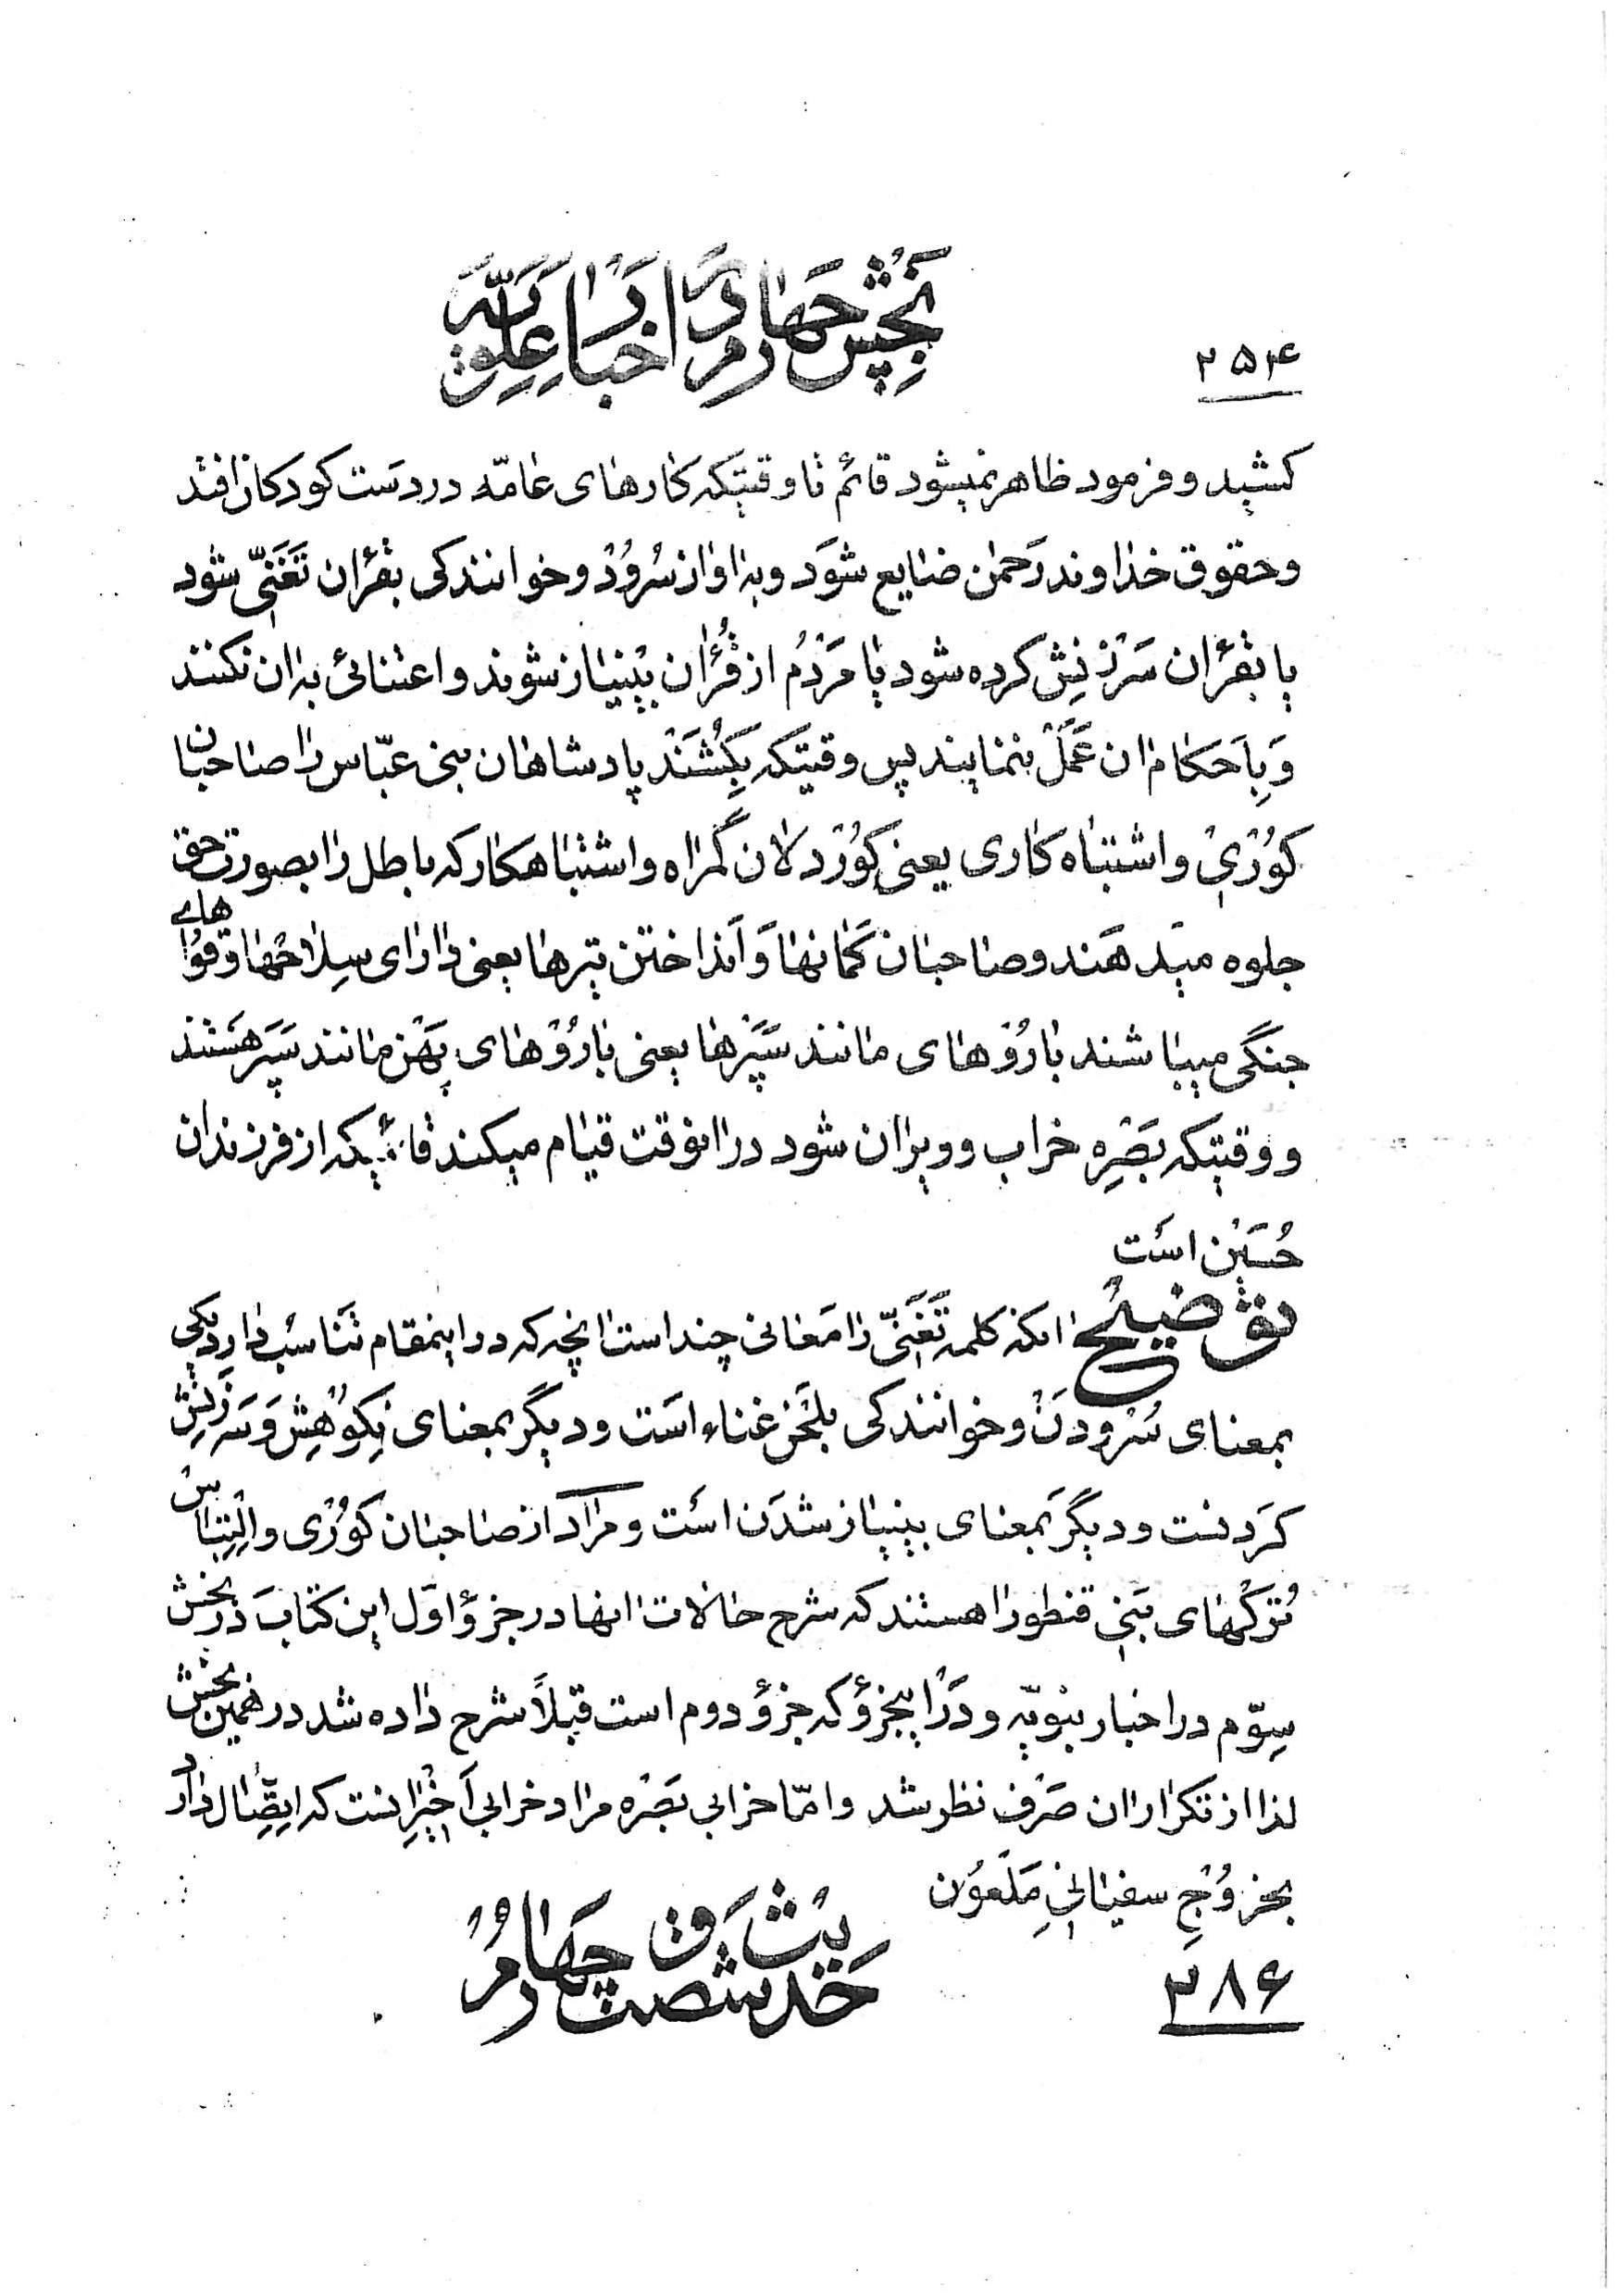 بخش چهارم در اخبار علویّه
۲۵۴
کشید و فرمود ظاهر نمیشود قائم تا وقتیکه کارهای عامّه در دست کودکان افتد
و حقوق خداوند رَحمٰن ضایع شَود و به اواز سُرُوْدْ و خوانندکی بقرٰان تَغَنّی شود
یا بقرٰان سَرْزنِش کرده شود یا مَرْدُم از قُرٰان بینیاز شوند و اعتنائی به ان نکنند
وَ بِاَحکام ان عَمَلْ ننمایند پس وقتیکه بِکُشَنْد پادشاهان بنی عبّاس را صاحبان
کوُرْیْ و اشتباه کاری یعنی کوُرْدلان گمراه و اشتباهکار که باطل را بصورت حق
جلوه میدهَند و صاحبان کمانها وَ اَنداختن تیرها یعنی دارای سِلاحها و قوُاهای
جنگی میباشند با رُوْهای مانند سَپَرْها یعنی با رُوْهای پَهْن مانند سپَر هَستند
و وقتیکه بَصْرِه خراب و ویران شود در انوقت قیام میکند قائمیکه از فرزندان
حُسَیْن اسَت
توضیح انکه کلمه تَغَنّی را مَعانی چند است انچه که در اینمقام تَناسُب دارد یکی
بمعنای سُرْودَنْ و خوانندکی بلَحن غناء اسَت و دیگر بمعنای نِکوُهِش وَ سَرْزنِش
کرَدنست و دیگر بَمعنای بینیاز شدَن اسَت و مراد از صاحبان کوُرْی و اِلْتِباس
تُرکهای بَنی قنطورا هستند که شرح حالات انها در جزؤ اوّل این کتابَ در بخش
سِوّم در اخبار نبوّیه و دَرْ اینجزؤ که جزؤ دوم است قبلاً شرح داده شد در همین بخش
لذا از تکرار ان صَرْف نظر شد و امّا خرابی بَصْره مراد خرابی اَخیرانست که اِتِّصٰال دارد
بخرُوْجِ سفیانیِ مَلعوُن
۲۸۶
حَدیث شصت و چَهارُمُ